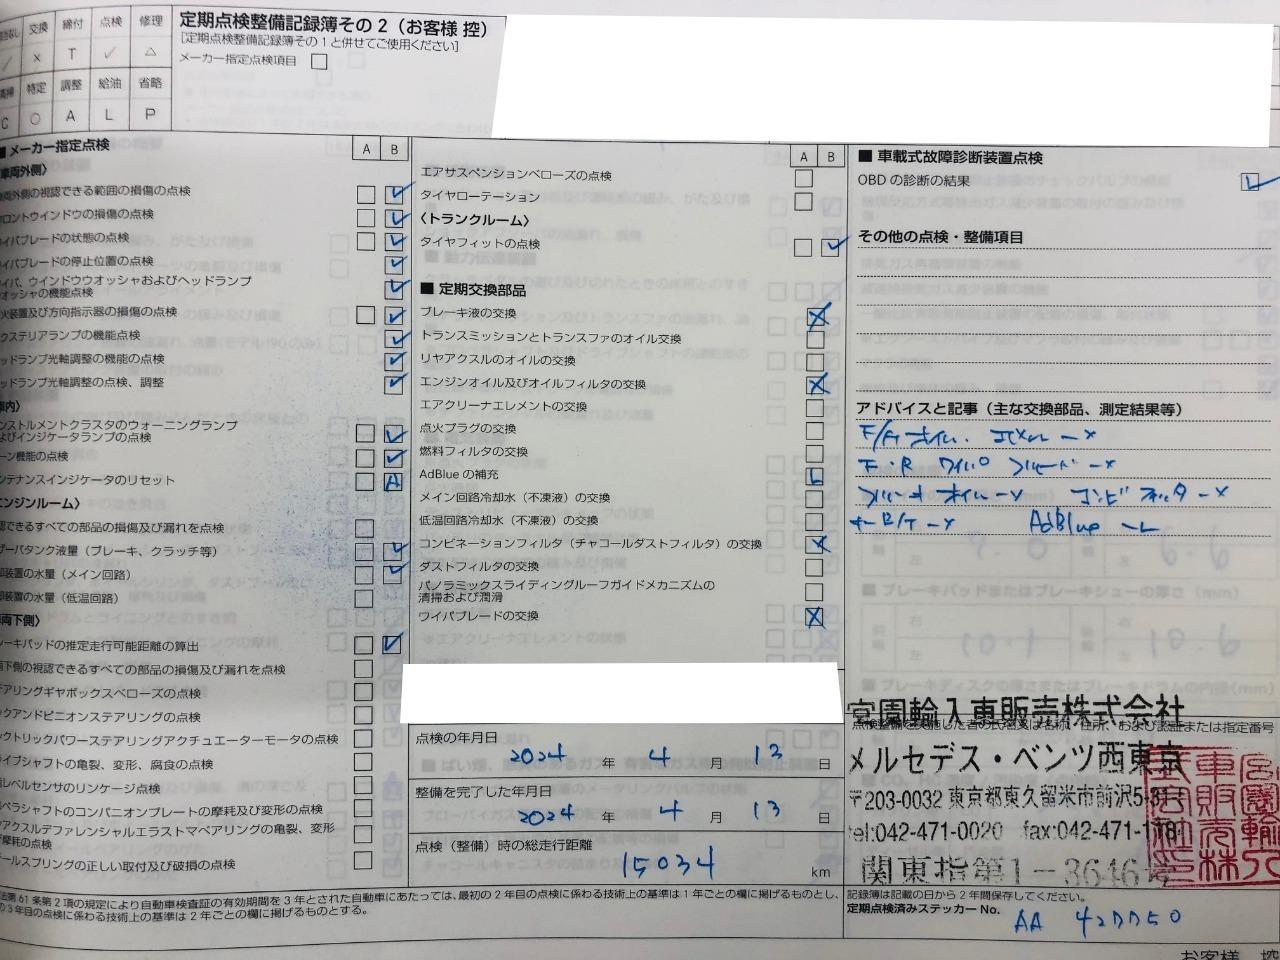 交換 締付 点検 修理
x T ✓ △
特定 調整 給油 省略
C ○ A L P
定期点検整備記録簿その2（お客様 控）
[定期点検整備記録簿その1と併せてご使用ください]
メーカー指定点検項目 □
■ メーカー指定点検 A B
車両外側〉
車両外側の視認できる範囲の損傷の点検
フロントウインドウの損傷の点検
ワイパブレードの状態の点検
ワイパブレードの停止位置の点検
ワイパ、ウインドウウオッシャおよびヘッドランプ
ウオッシャの機能点検
灯火装置及び方向指示器の損傷の点検
エクステリアランプの機能点検
ヘッドランプ光軸調整の機能の点検
ヘッドランプ光軸調整の点検、調整
車内〉
インストルメントクラスタのウォーニングランプ
およびインジケータランプの点検
ホーン機能の点検
メンテナンスインジケータのリセット A
エンジンルーム〉
視認できるすべての部品の損傷及び漏れを点検
リザーバタンク液量（ブレーキ、クラッチ等）
冷却装置の水量（メイン回路）
冷却装置の水量（低温回路）
車両下側〉
ブレーキパッドの推定走行可能距離の算出
車両下側の視認できるすべての部品の損傷及び漏れを点検
ステアリングギヤボックスベローズの点検
ラックアンドピニオンステアリングの点検
エレクトリックパワーステアリングアクチュエーターモータの点検
ドライブシャフトの亀裂、変形、腐食の点検
車高レベルセンサのリンケージ点検
プロペラシャフトのコンパニオンプレートの摩耗及び変形の点検
リヤアクスルデファレンシャルエラストマベアリングの亀裂、変形
摩耗の点検
コイルスプリングの正しい取付及び破損の点検
A B
エアサスペンションベローズの点検
タイヤローテーション
〈トランクルーム〉
タイヤフィットの点検
■ 定期交換部品
ブレーキ液の交換 X
トランスミッションとトランスファのオイル交換
リヤアクスルのオイルの交換
エンジンオイル及びオイルフィルタの交換 X
エアクリーナエレメントの交換
点火プラグの交換
燃料フィルタの交換
AdBlueの補充 L
メイン回路冷却水（不凍液）の交換
低温回路冷却水（不凍液）の交換
コンビネーションフィルタ（チャコールダストフィルタ）の交換 X
ダストフィルタの交換
パノラミックスライディングルーフガイドメカニズムの
清掃および潤滑
ワイパブレードの交換 X
点検の年月日
2024 年 4 月 13 日
整備を完了した年月日
2024 年 4 月 13 日
点検（整備）時の総走行距離
15034 km
■ 車載式故障診断装置点検
OBD の診断の結果
その他の点検・整備項目
アドバイスと記事（主な交換部品、測定結果等）
F・R ワイパー ブレード -x
ブレーキ オイル -x コンビ フィルター -x
AdBlue -L
宮園輸入車販売株式会社
点検整備を実施した者の氏名又は名称、住所、および認証または指定番号
メルセデス・ベンツ西東京
〒203-0032 東京都東久留米市前沢5-31
tel:042-471-0020 fax:042-471-1181
関東指第1－3646号
法第61条第2項の規定により自動車検査証の有効期間を3年とされた自動車にあたっては、最初の2年目の点検に係わる技術上の基準は1年ごとの欄に掲げるものとし、
の3年目の点検に係わる技術上の基準は2年ごとの欄に掲げるものとする。
記録簿は記載の日から2年間保存してください。
定期点検済みステッカー No.
お客様 控